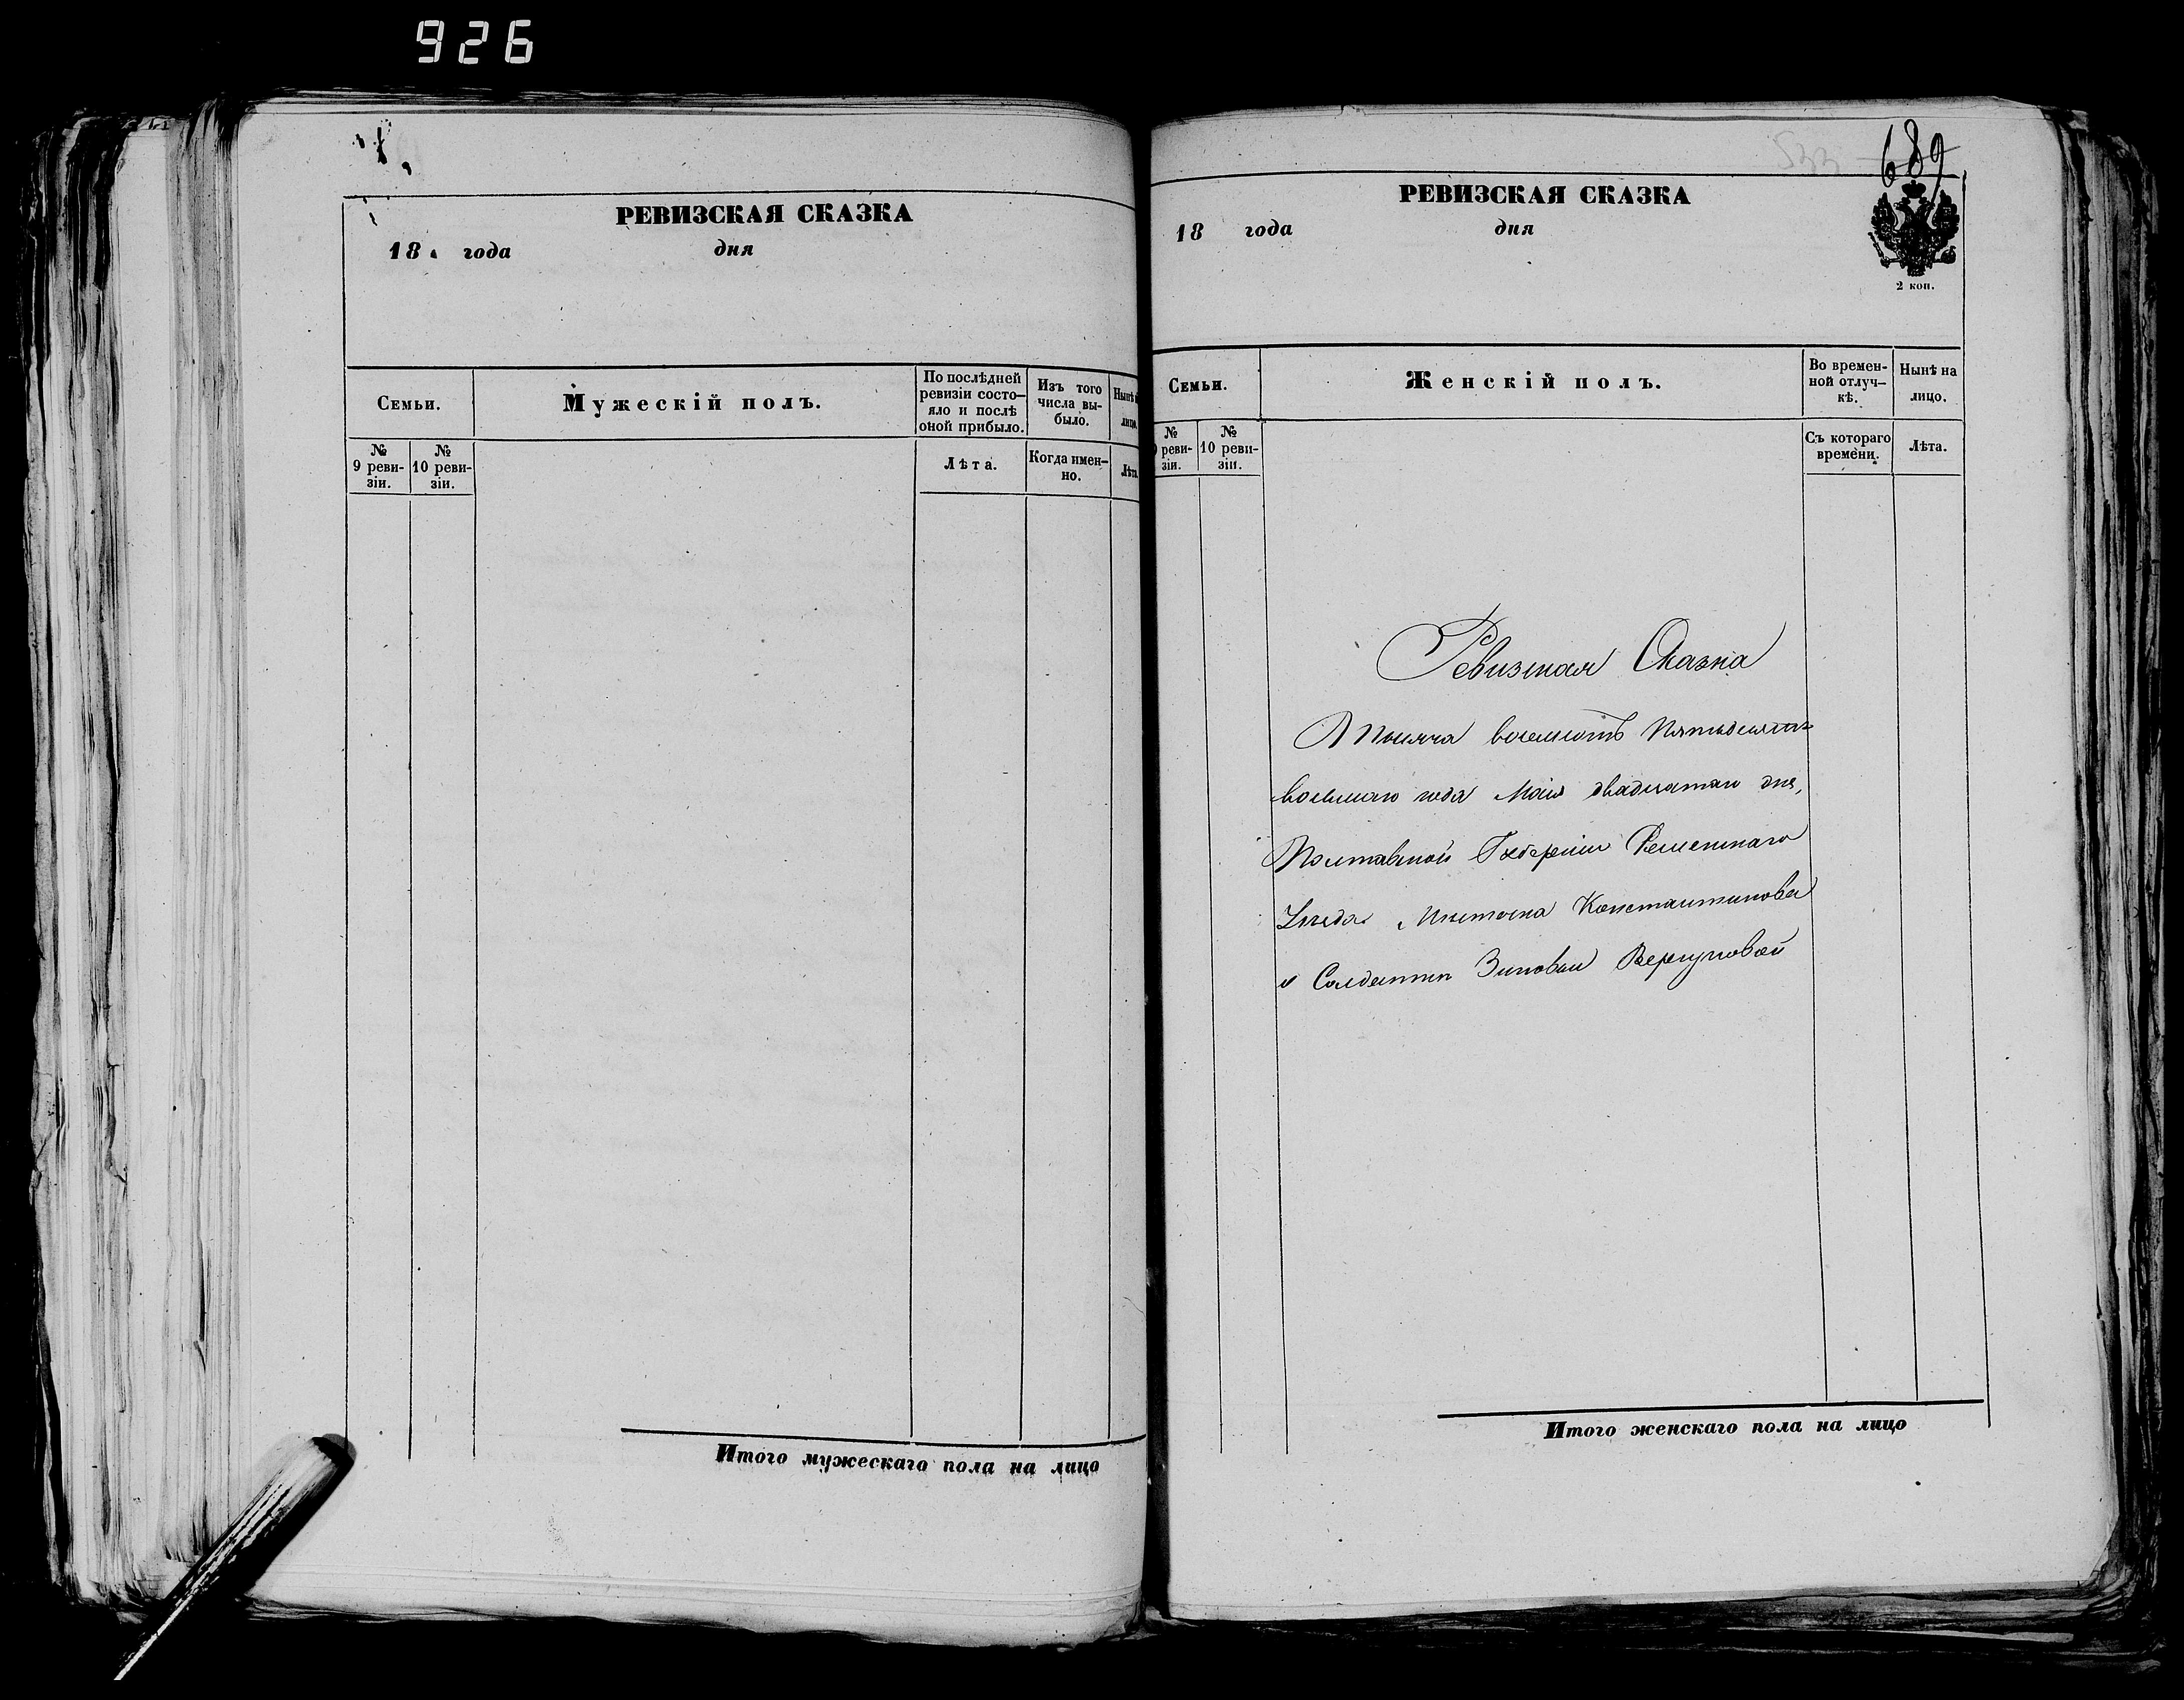 926
РЕВИЗСКАЯ СКАЗКА
18 года дня
Семьи.
Мужескій полъ.
По послѣдней ревизіи состо- яло и послѣ оной прибыло.
Изъ того числа вы- было.
Нынѣ лицо.
№ 9 реви- зіи.
№ 10 реви- зіи.
Лѣта.
Когда имен- но.
Лѣта.
Итого мужескаго пола на лицо
689
РЕВИЗСКАЯ СКАЗКА
18 года дня
2 коп.
Семьи.
Женскій полъ.
Во времен- ной отлуч- кѣ.
Нынѣ на лицо.
№ реви- зіи.
№ 10 реви- зіи.
Съ котораго времени.
Лѣта.
Ревизская Сказка
Тысяча восемсотъ Пятьдесятъ
восьмаго года Маія двадцатаго дня,
Полтавской Губерніи Роменскаго
Уѣзда Мѣстечка Константинова
о Солдаткѣ Зиновьи Вергуновой
Итого женскаго пола на лицо